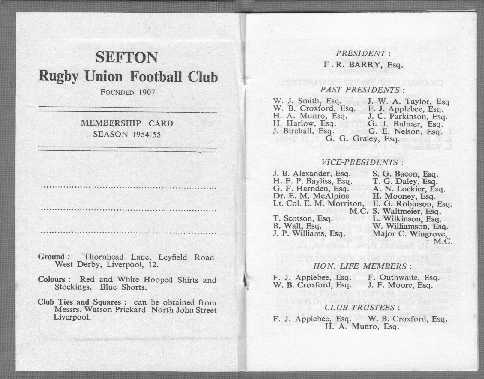 SEFTON
Rugby Union Football Club
FOUNDED 1907
MEMBERSHIP CARD
SEASON 1954/55
Ground : Thornhead Lane, Leyfield Road
West Derby, Liverpool, 12.
Colours : Red and White Hooped Shirts and
Stockings. Blue Shorts.
Club Ties and Squares : can be obtained from
Messrs. Watson Prickard North John Street
Liverpool.
PRESIDENT :
F. R. BARRY, Esq.
PAST PRESIDENTS :
W. J. Smith, Esq. J. W. A. Taylor, Esq
W. B. Croxford, Esq. F. J. Applebee, Esq.
H. A. Munro, Esq. J. C. Parkinson, Esq.
H. Harlow, Esq. G. J. Bulmer, Esq.
J. Birchall, Esq. G. E. Nelson, Esq.
G. G. Graley, Esq.
VICE-PRESIDENTS :
J. B. Alexander, Esq. S. G. Bacon, Esq.
H. F. P. Bayliss, Esq. T. G. Daley, Esq.
G. F. Harnden, Esq. A. N. Lockier, Esq.
Dr. E. M. McAlpine H. Mooney, Esq.
Lt. Col. E. M. Morrison, E. G. Robinson, Esq.
M.C. S. Waltmeier, Esq.
T. Scotson, Esq. L. Wilkinson, Esq.
B. Wall, Esq. W. Williamson, Esq.
J. P. Williams, Esq. Major C. Wingrove,
M.C.
HON. LIFE MEMBERS :
F. J. Applebee, Esq. F. Outhwaite, Esq.
W. B. Croxford, Esq. J. F. Moore, Esq.
CLUB TRUSTEES :
F. J. Applebee, Esq. W. B. Croxford, Esq.
H. A. Munro, Esq.